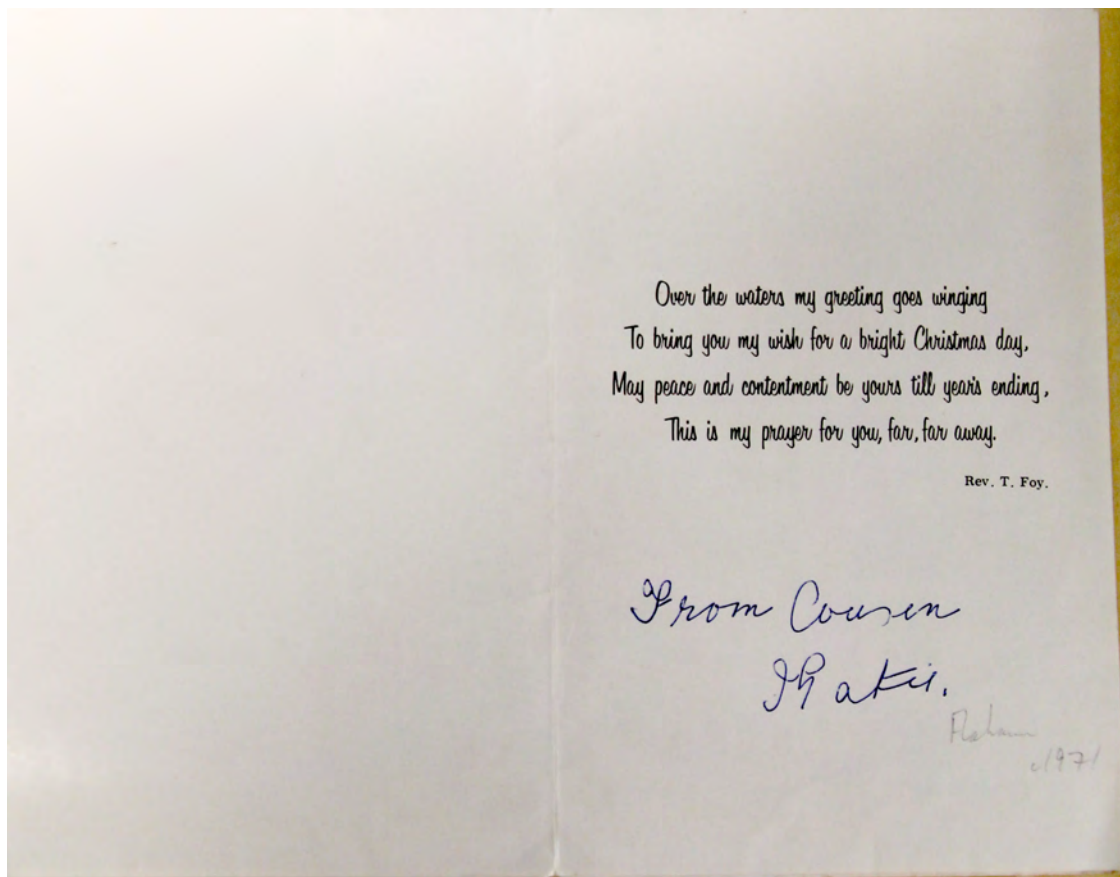 Over the waters my greeting goes winging
To bring you my wish for a bright Christmas day,
May peace and contentment be yours till year's ending,
This is my prayer for you, far, far away.
Rev. T. Foy.
From Cousin
Katie.
c1971